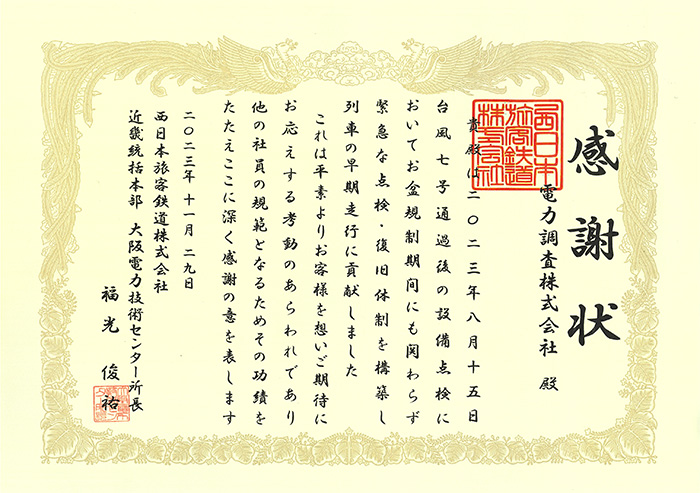 感謝状
電力調査株式会社 殿
貴殿は二〇二三年八月十五日
台風七号通過後の設備点検に
おいてお盆規制期間にも関わらず
緊急な点検・復旧体制を構築し
列車の早期走行に貢献しました
これは平素よりお客様を想いご期待に
お応えする考動のあらわれであり
他の社員の規範となるためその功績を
たたえここに深く感謝の意を表します
二〇二三年 十一月 二九日
西日本旅客鉄道株式会社
近畿統括本部 大阪電力技術センター所長
福光 俊祐
西日本
旅客鉄道
株式会社